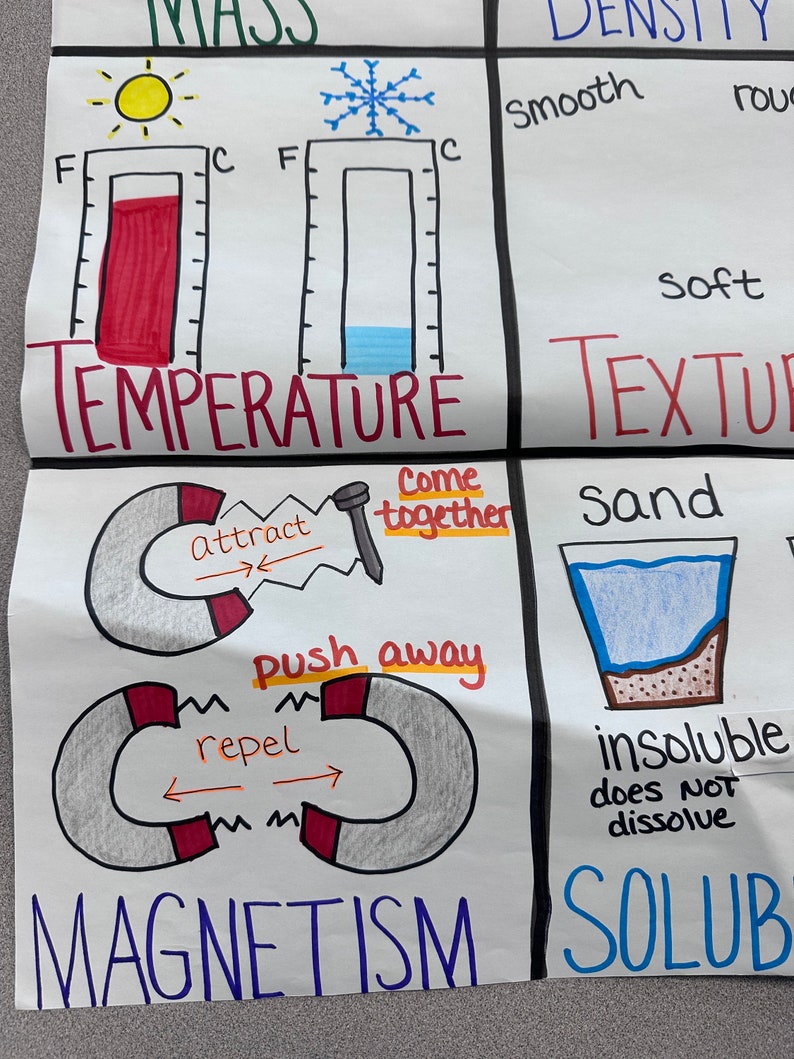 MASS
DENSITY
F
C
F
C
TEMPERATURE
smooth
soft
attract
come
together
push away
repel
MAGNETISM
sand
insoluble
does NOT
dissolve